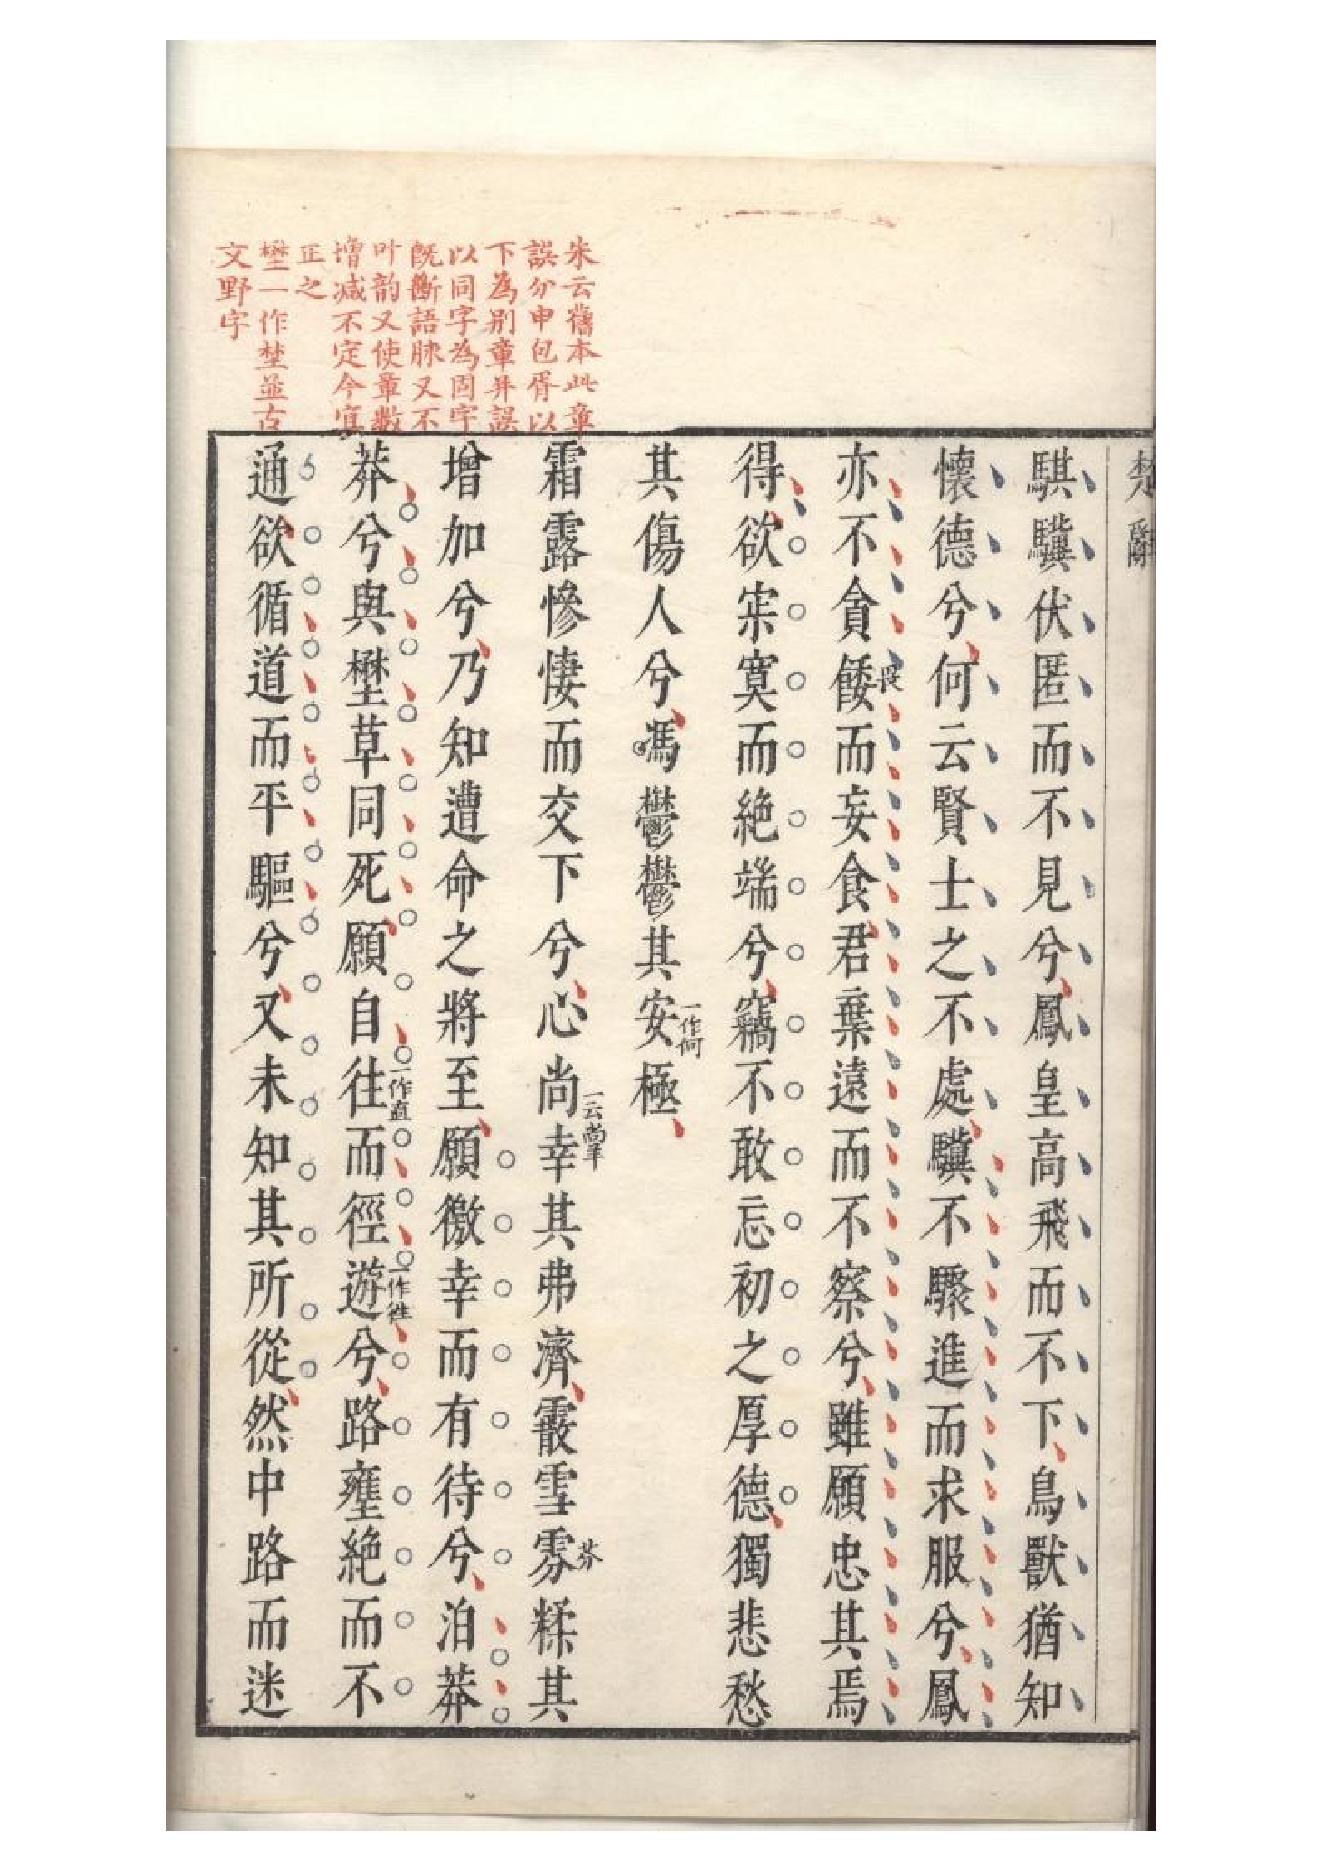 楚辭
騏驥伏匿而不見兮鳳皇高飛而不下鳥獸猶知
懷德兮何云賢士之不處驥不驟進而求服兮鳳
亦不貪餧而妄食君棄遠而不察兮雖願忠其焉
得欲寂寞而絶端兮竊不敢忘初之厚德獨悲愁
其傷人兮馮鬱鬱其安一作何極
霜露慘悽而交下兮心尚一云常幸其弗濟霰雪雰芬糅其
增加兮乃知遭命之將至願徼幸而有待兮泊莽
莽兮與壄草同死願自往一作直而徑遊一作往兮路壅絶而不
通欲循道而平驅兮又未知其所從然中路而迷
朱云舊本此章
誤分申包胥以
下為别章并誤
以同字為固字
既斷語脉又不
叶韵又使章數
增减不定今寔
正之
壄一作埜並古
文野字